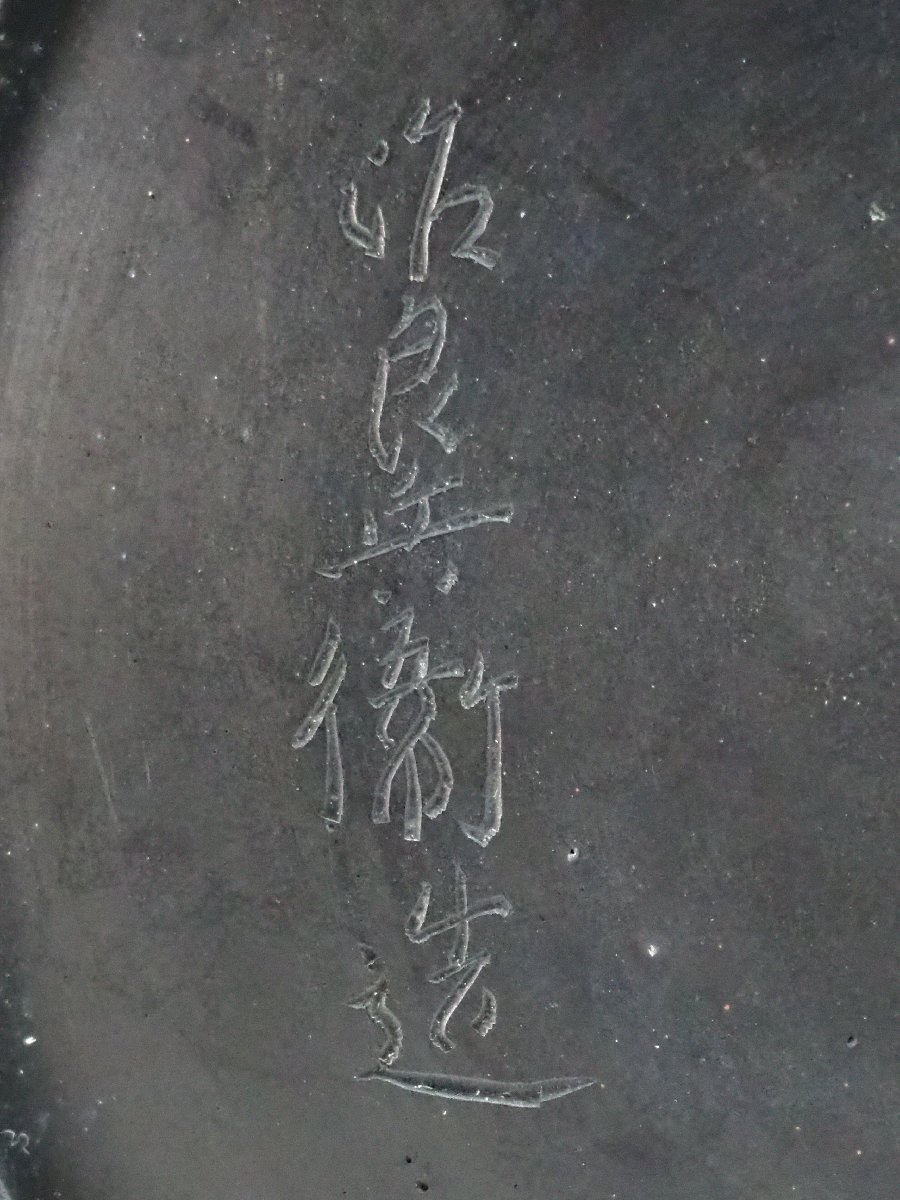 治良兵衛造